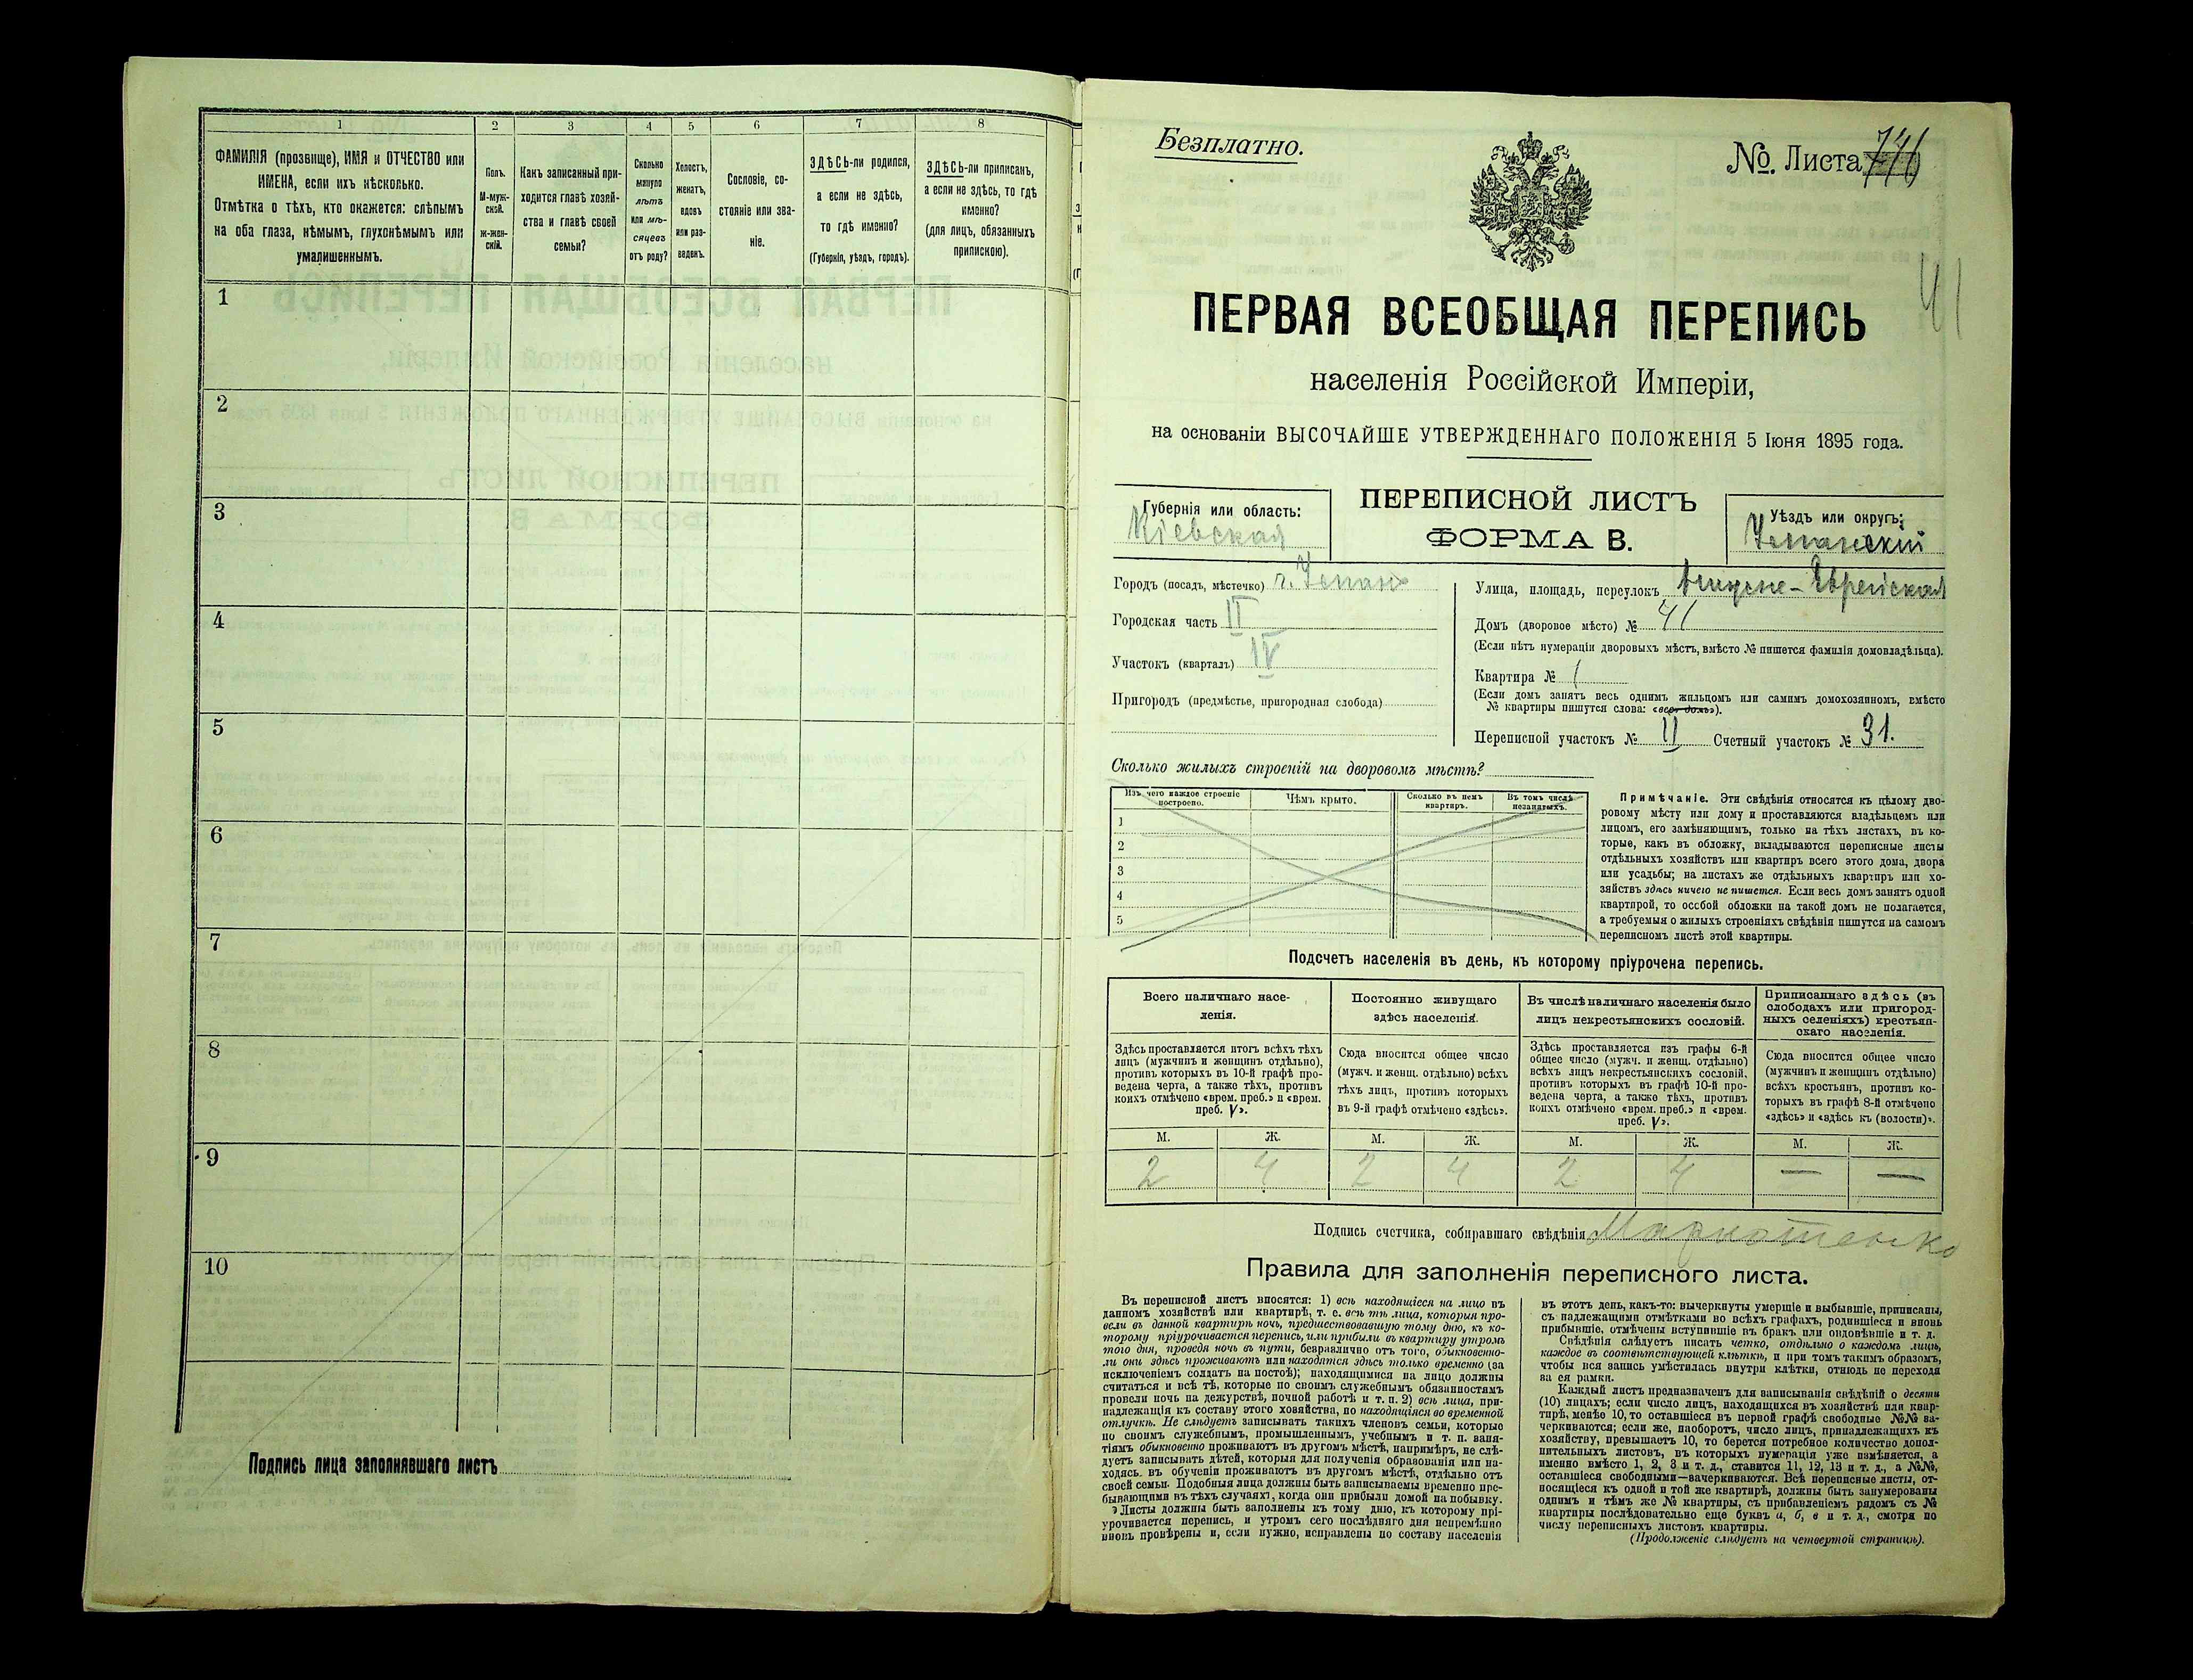 1
2
3
4
5
6
7
8
ФАМИЛІЯ (прозвище), ИМЯ и ОТЧЕСТВО или
ИМЕНА, если ихъ нѣсколько.
Отмѣтка о тѣхъ, кто окажется: слѣпымъ
на оба глаза, нѣмымъ, глухонѣмымъ или
умалишеннымъ.
Полъ.
М-муж-
ской.
Ж-жен-
скій.
Какъ записанный при-
ходится главѣ хозяй-
ства и главѣ своей
семьи?
Сколько
минуло
лѣтъ
или мѣ-
сяцевъ
отъ роду?
Холостъ,
женатъ,
вдовъ
или раз-
веденъ.
Сословіе, со-
стояніе или зва-
ніе.
ЗДѢСЬ-ли родился,
а если не здѣсь,
то гдѣ именно?
(Губернія, уѣздъ, городъ).
ЗДѢСЬ-ли приписанъ,
а если не здѣсь, то гдѣ
именно?
(для лицъ, обязанныхъ
припискою).
1
2
3
4
5
6
7
8
9
10
Подпись лица заполнявшаго листъ
Безплатно.
№. Листа
41
ПЕРВАЯ ВСЕОБЩАЯ ПЕРЕПИСЬ
населенія Россійской Имперіи,
на основаніи ВЫСОЧАЙШЕ УТВЕРЖДЕННАГО ПОЛОЖЕНІЯ 5 Іюня 1895 года.
Губернія или область:
Кіевская
ПЕРЕПИСНОЙ ЛИСТЪ
ФОРМА В.
Уѣздъ или округъ:
Уманскій
Городъ (посадъ, мѣстечко) г. Умань
Городская часть II
Участокъ (кварталъ) IV
Пригородъ (предмѣстье, пригородная слобода)
Улица, площадь, переулокъ Еврейская
Домъ (дворовое мѣсто) № 41
(Если нѣтъ нумераціи дворовыхъ мѣстъ, вмѣсто № пишется фамилія домовладѣльца).
Квартира № 1
(Если домъ занятъ весь однимъ жильцомъ или самимъ домохозяиномъ, вмѣсто
№ квартиры пишутся слова: «весь домъ»).
Переписной участокъ № II Счетный участокъ № 31.
Сколько жилыхъ строеній на дворовомъ мѣстѣ?
Изъ чего каждое строеніе
построено.
Чѣмъ крыто.
Сколько въ немъ
квартиръ.
Въ томъ числѣ
незанятыхъ.
1
2
3
4
5
Примѣчаніе. Эти свѣдѣнія относятся къ цѣлому дво-
ровому мѣсту или дому и проставляются владѣльцемъ или
лицомъ, его замѣняющимъ, только на тѣхъ листахъ, въ ко-
торые, какъ въ обложку, вкладываются переписные листы
отдѣльныхъ хозяйствъ или квартиръ всего этого дома, двора
или усадьбы; на листахъ же отдѣльныхъ квартиръ или хо-
зяйствъ здѣсь ничего не пишется. Если весь домъ занятъ одной
квартирой, то особой обложки на такой домъ не полагается,
а требуемыя о жилыхъ строеніяхъ свѣдѣнія пишутся на самомъ
переписномъ листѣ этой квартиры.
Подсчетъ населенія въ день, къ которому пріурочена перепись.
Всего наличнаго насе-
ленія.
Постоянно живущаго
здѣсь населенія.
Въ числѣ наличнаго населенія было
лицъ некрестьянскихъ сословій.
Приписаннаго здѣсь (въ
слободахъ или пригород-
ныхъ селеніяхъ) крестьян-
скаго населенія.
Здѣсь проставляется итогъ всѣхъ тѣхъ
лицъ (мужчинъ и женщинъ отдѣльно),
противъ которыхъ въ 10-й графѣ про-
ведена черта, а также тѣхъ, противъ
коихъ отмѣчено «врем. преб.» и «врем.
преб. V».
Сюда вносится общее число
(мужч. и женщ. отдѣльно) всѣхъ
тѣхъ лицъ, противъ которыхъ
въ 9-й графѣ отмѣчено «здѣсь».
Здѣсь проставляется изъ графы 6-й
общее число (мужч. и женщ. отдѣльно)
всѣхъ лицъ некрестьянскихъ сословій,
противъ которыхъ въ графѣ 10-й про-
ведена черта, а также тѣхъ, противъ
коихъ отмѣчено «врем. преб.» и «врем.
преб. V».
Сюда вносится общее число
(мужчинъ и женщинъ отдѣльно)
всѣхъ крестьянъ, противъ ко-
торыхъ въ графѣ 8-й отмѣчено
«здѣсь» и «здѣсь къ (волости)».
М. Ж. М. Ж. М. Ж. М. Ж.
2 4 2 4 2 4 — —
Подпись счетчика, собиравшаго свѣдѣнія
Правила для заполненія переписного листа.
Въ переписной листъ вносятся: 1) всѣ находящіеся на лицо въ
данномъ хозяйствѣ или квартирѣ, т. е. всѣ тѣ лица, которыя про-
вели въ данной квартирѣ ночь, предшествовавшую тому дню, къ ко-
торому пріурочивается перепись, или прибыли въ квартиру утромъ
того дня, проведя ночь въ пути, безразлично отъ того, обыкновенно-
ли они здѣсь проживаютъ или находятся здѣсь только временно (за
исключеніемъ солдатъ на постоѣ); находящимися на лицо должны
считаться и всѣ тѣ, которые по своимъ служебнымъ обязанностямъ
провели ночь на дежурствѣ, ночной работѣ и т. п. 2) всѣ лица, при-
надлежащія къ составу этого хозяйства, но находящіяся во временной
отлучкѣ. Не слѣдуетъ записывать такихъ членовъ семьи, которые
по своимъ служебнымъ, промышленнымъ, учебнымъ и т. п. заня-
тіямъ обыкновенно проживаютъ въ другомъ мѣстѣ, напримѣръ, не слѣ-
дуетъ записывать дѣтей, которыя для полученія образованія или на-
ходясь въ обученіи проживаютъ въ другомъ мѣстѣ, отдѣльно отъ
своей семьи. Подобныя лица должны быть записываемы временно пре-
бывающими въ тѣхъ случаяхъ, когда они прибыли домой на побывку.
Листы должны быть заполнены къ тому дню, къ которому прі-
урочивается перепись, и утромъ сего послѣдняго дня непремѣнно
вновь провѣрены и, если нужно, исправлены по составу населенія
въ этотъ день, какъ-то: вычеркнуты умершіе и выбывшіе, приписаны,
съ надлежащими отмѣтками во всѣхъ графахъ, родившіеся и вновь
прибывшіе, отмѣчены вступившіе въ бракъ или овдовѣвшіе и т. д.
Свѣдѣнія слѣдуетъ писать четко, отдѣльно о каждомъ лицѣ,
каждое въ соотвѣтствующей клѣткѣ, и при томъ такимъ образомъ,
чтобы вся запись умѣстилась внутри клѣтки, отнюдь не переходя
за ея рамки.
Каждый листъ предназначенъ для записыванія свѣдѣній о десяти
(10) лицахъ; если число лицъ, находящихся въ хозяйствѣ или квар-
тирѣ, менѣе 10, то оставшіеся въ первой графѣ свободные №№ за-
черкиваются; если же, наоборотъ, число лицъ, принадлежащихъ къ
хозяйству, превышаетъ 10, то берется потребное количество допол-
нительныхъ листовъ, въ которыхъ нумерація уже измѣняется, а
именно вмѣсто 1, 2, 3 и т. д., ставится 11, 12, 13 и т. д., а №№,
оставшіеся свободными—зачеркиваются. Всѣ переписные листы, от-
носящіеся къ одной и той же квартирѣ, должны быть занумерованы
однимъ и тѣмъ же № квартиры, съ прибавленіемъ рядомъ съ №
квартиры послѣдовательно еще буквъ а, б, в и т. д., смотря по
числу переписныхъ листовъ квартиры.
(Продолженіе слѣдуетъ на четвертой страницѣ).